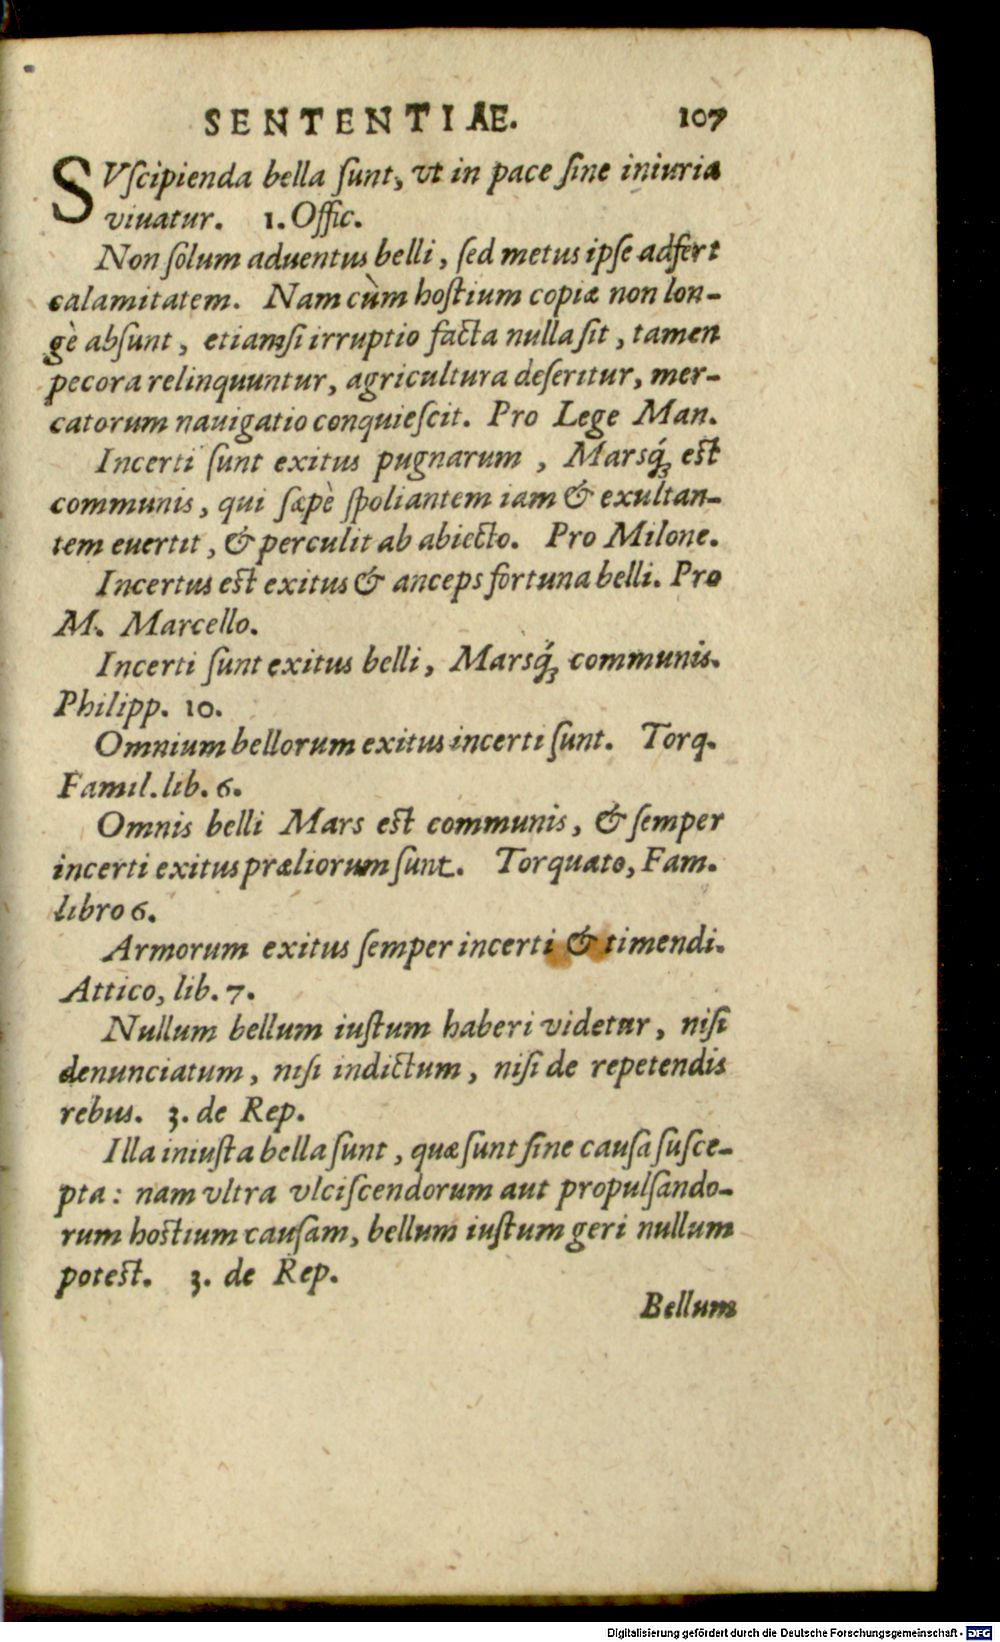 SENTENTIAE. 107
SVſcipienda bella ſunt, vt in pace ſine iniuria
viuatur. 1. Offic.
Non ſolum aduentus belli, ſed metus ipſe adfert
calamitatem. Nam cùm hoſtium copiæ non lon-
gè abſunt, etiamſi irruptio facta nulla ſit, tamen
pecora relinquuntur, agricultura deſeritur, mer-
catorum nauigatio conquieſcit. Pro Lege Man.
Incerti ſunt exitus pugnarum, Marsq́; eſt
communis, qui ſæpè ſpoliantem iam & exultan-
tem euertit, & perculit ab abiecto. Pro Milone.
Incertus eſt exitus & anceps fortuna belli. Pro
M. Marcello.
Incerti ſunt exitus belli, Marsq́; communis.
Philipp. 10.
Omnium bellorum exitus incerti ſunt. Torq.
Famil. lib. 6.
Omnis belli Mars eſt communis, & ſemper
incerti exitus præliorum ſunt. Torquato, Fam.
libro 6.
Armorum exitus ſemper incerti & timendi.
Attico, lib. 7.
Nullum bellum iuſtum haberi videtur, niſi
denunciatum, niſi indictum, niſi de repetendis
rebus. 3. de Rep.
Illa iniuſta bella ſunt, quæ ſunt ſine cauſa ſuſce-
pta: nam vltra vlciſcendorum aut propulſando-
rum hoſtium cauſam, bellum iuſtum geri nullum
poteſt. 3. de Rep.
Bellum
Digitalisierung gefördert durch die Deutsche Forschungsgemeinschaft - DFG